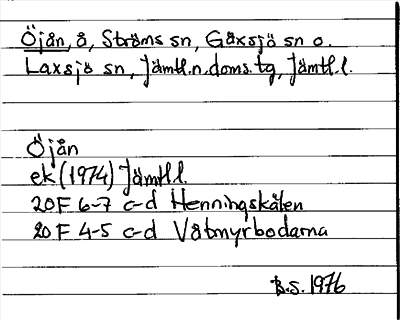 Öjån, å, Ströms sn, Gåxsjö sn o.
Laxsjö sn, Jämtl.n.doms.tg, Jämtl.l.
Öjån
ek (1974) Jämtl.l.
20F 6-7 c-d Henningskälen
20F 4-5 c-d Våtmyrbodarna
B.S. 1976